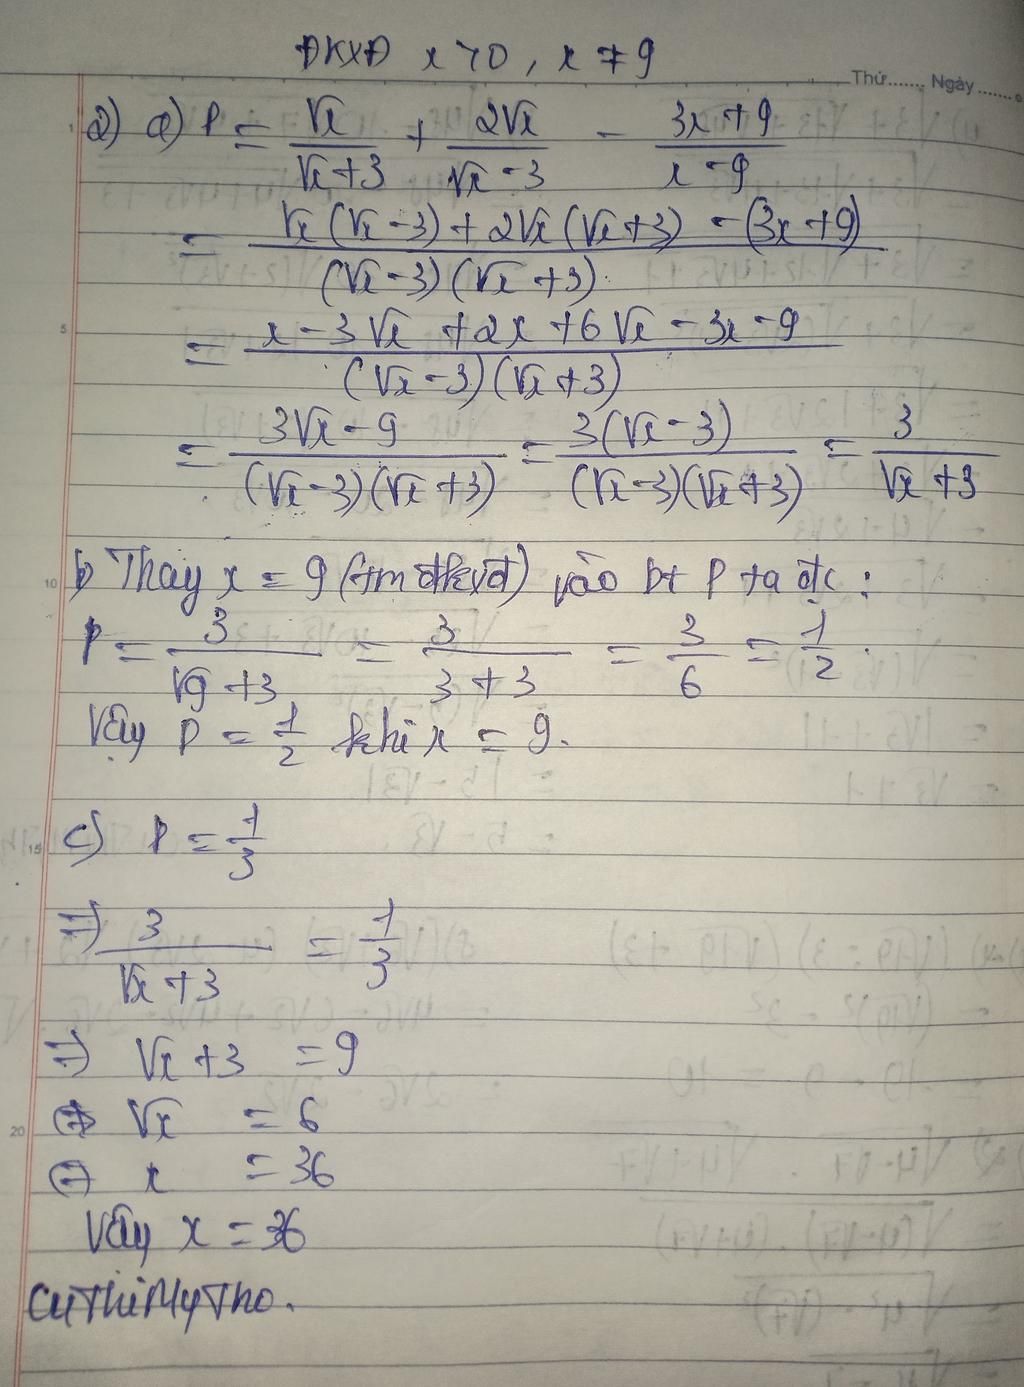 ĐKXĐ x > 0, x ≠ 9
Thứ....... Ngày.......
2) a) P = √x/(√x+3) + 2√x/(√x-3) - (3x+9)/(x-9)
= (√x(√x-3) + 2√x(√x+3) - (3x+9))/((√x-3)(√x+3))
= (x - 3√x + 2x + 6√x - 3x - 9)/((√x-3)(√x+3))
= (3√x - 9)/((√x-3)(√x+3)) = 3(√x-3)/((√x-3)(√x+3)) = 3/(√x+3)
b) Thay x = 9 (tm đkxđ) vào bt P ta đc :
P = 3/(√9+3) = 3/(3+3) = 3/6 = 1/2.
Vậy P = 1/2 khi x = 9.
c) P = 1/3
=) 3/(√x+3) = 1/3
=) √x+3 = 9
⇔ √x = 6
⇔ x = 36
Vậy x = 36
CuThiMyTho.